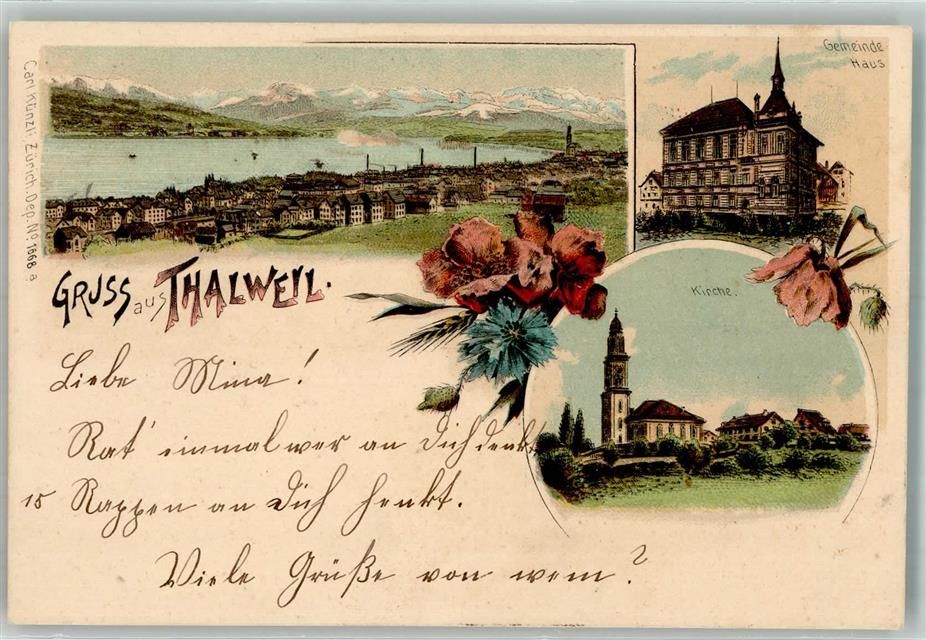 Carl Künzli Zürich. Dep. No. 1668 a
Gemeinde
Haus
GRUSS aus THALWEIL.
Kirche.
Liebe Mina!
Rat' einmal wer an Dich denkt
15 Rappen an Dich henkt.
Viele Grüße von wem?